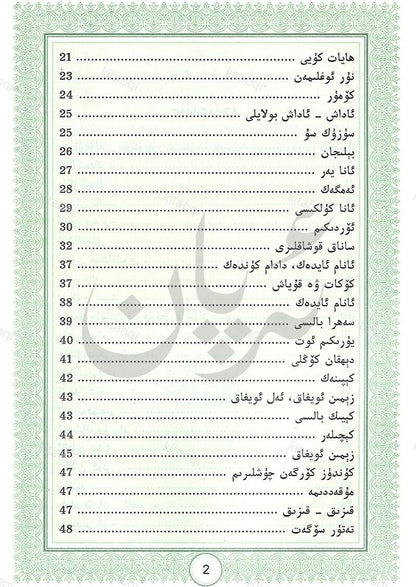 ھايات كۈيى ........ 21
نۇر ئوغلىمەن ........ 23
كۆمۈر ........ 24
ئاداش - ئاداش بولايلى ........ 25
سۈزۈك سۇ ........ 25
بېلىجان ........ 26
ئانا يەر ........ 27
ئەمگەك ........ 28
ئانا كۈلكىسى ........ 29
ئۆردىكىم ........ 30
ساناق قوشاقلىرى ........ 32
ئانام ئايدەك، دادام كۈندەك ........ 37
كۆكات ۋە قۇياش ........ 37
ئانام ئايدەك ........ 38
سەھرا بالىسى ........ 39
يۈرىكىم ئوت ........ 40
دېھقان كۆڭلى ........ 41
كېپىنەك ........ 42
زېمىن ئويغاق، ئەل ئويغاق ........ 43
كېيىك بالىسى ........ 43
كېچىلەر ........ 44
زېمىن ئويغاق ........ 45
كۈندۈز كۆرگەن چۈشلىرىم ........ 47
مۇقەددىمە ........ 47
قىزىق - قىزىق ........ 47
تەتۈر سۆگەت ........ 48
2